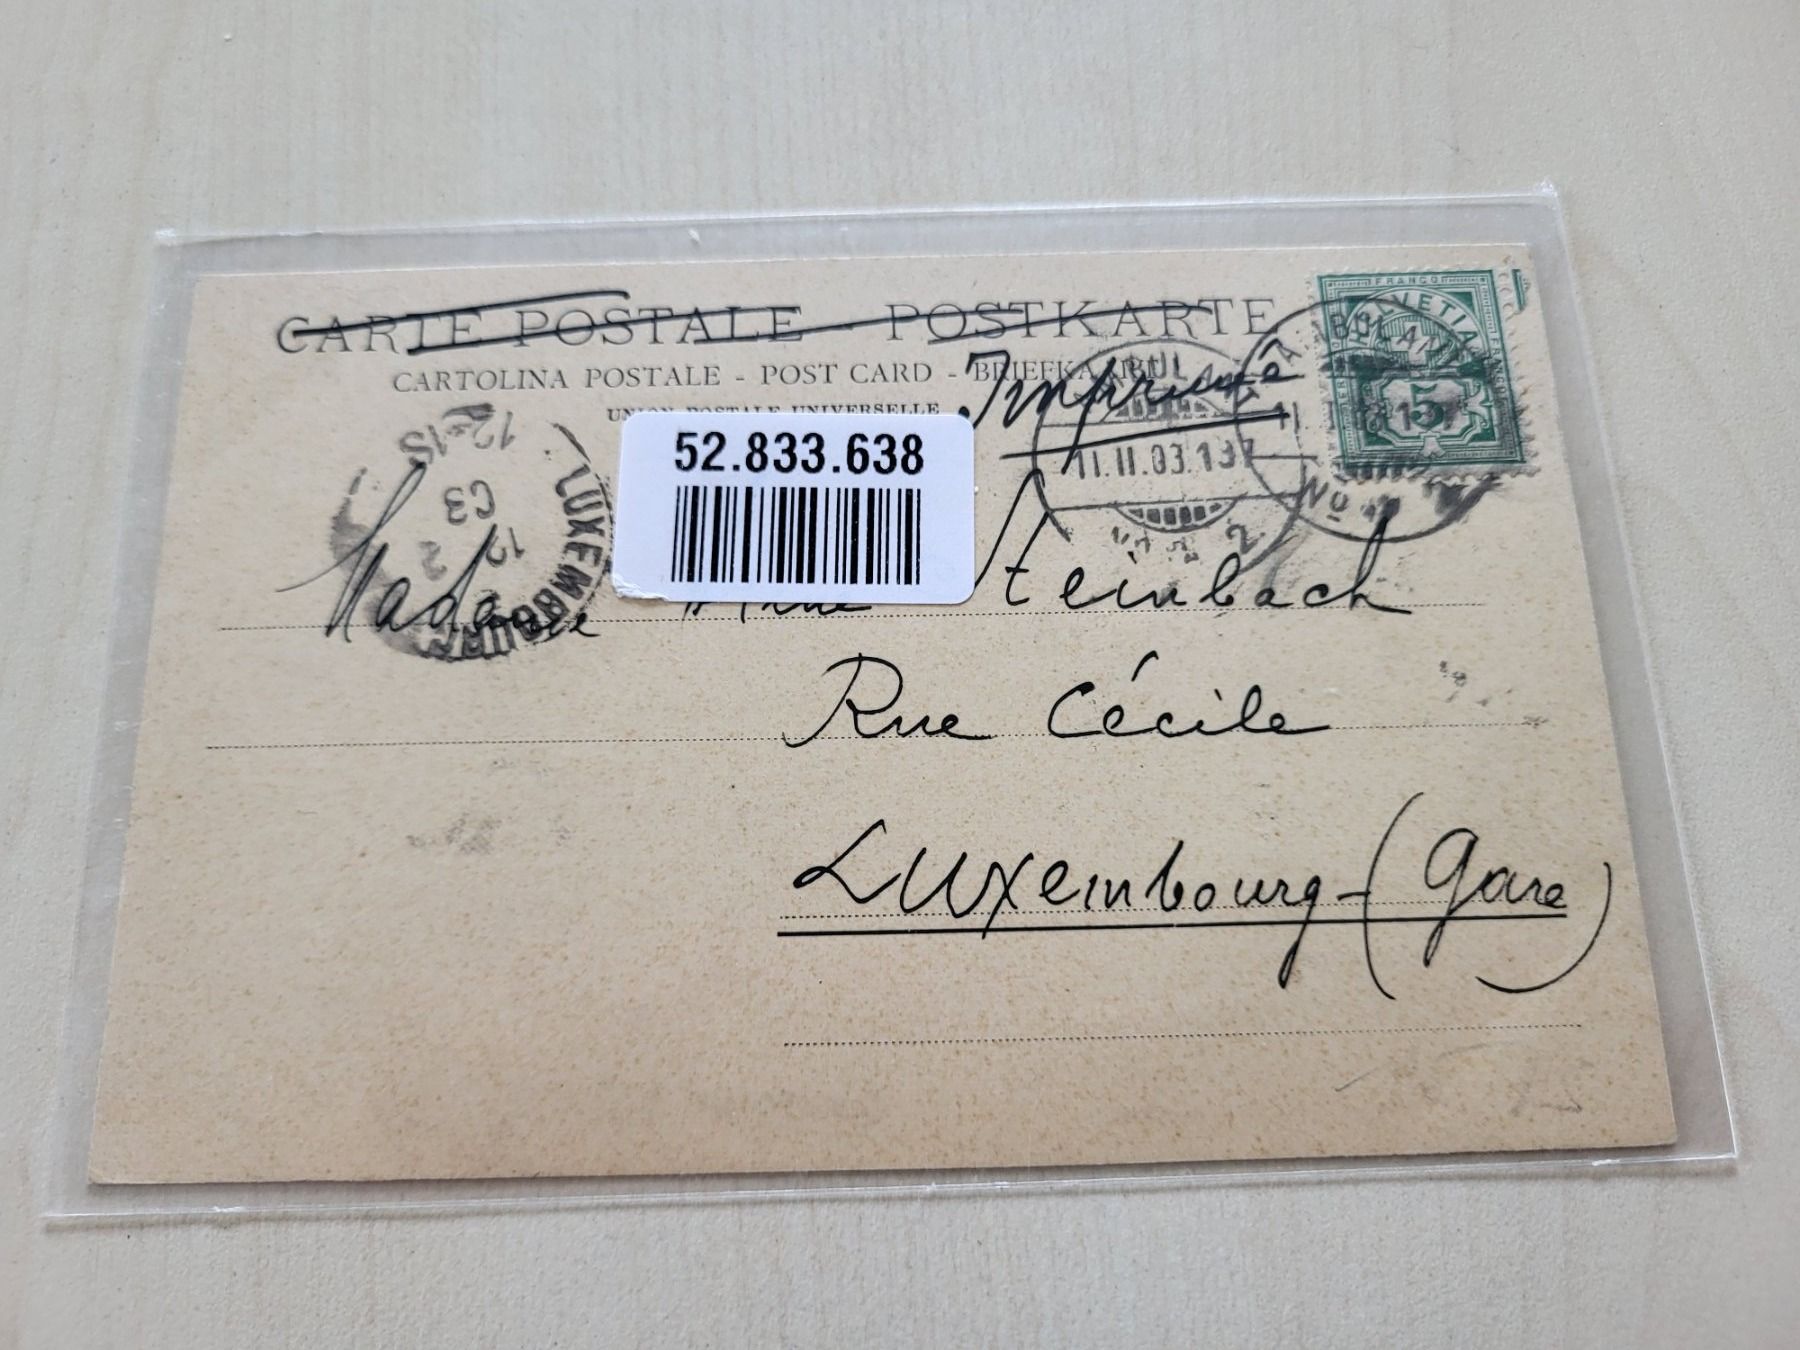 CARTE POSTALE - POSTKARTE
CARTOLINA POSTALE - POST CARD - BRIEFKAART
UNION POSTALE UNIVERSELLE
Imprimé
FRANCO
HELVETIA
5
11.II.03.
12-1S
12 2
C3
LUXEMBOURG
52.833.638
Madame Steinbach
Rue Cécile
Luxembourg-(Gare)